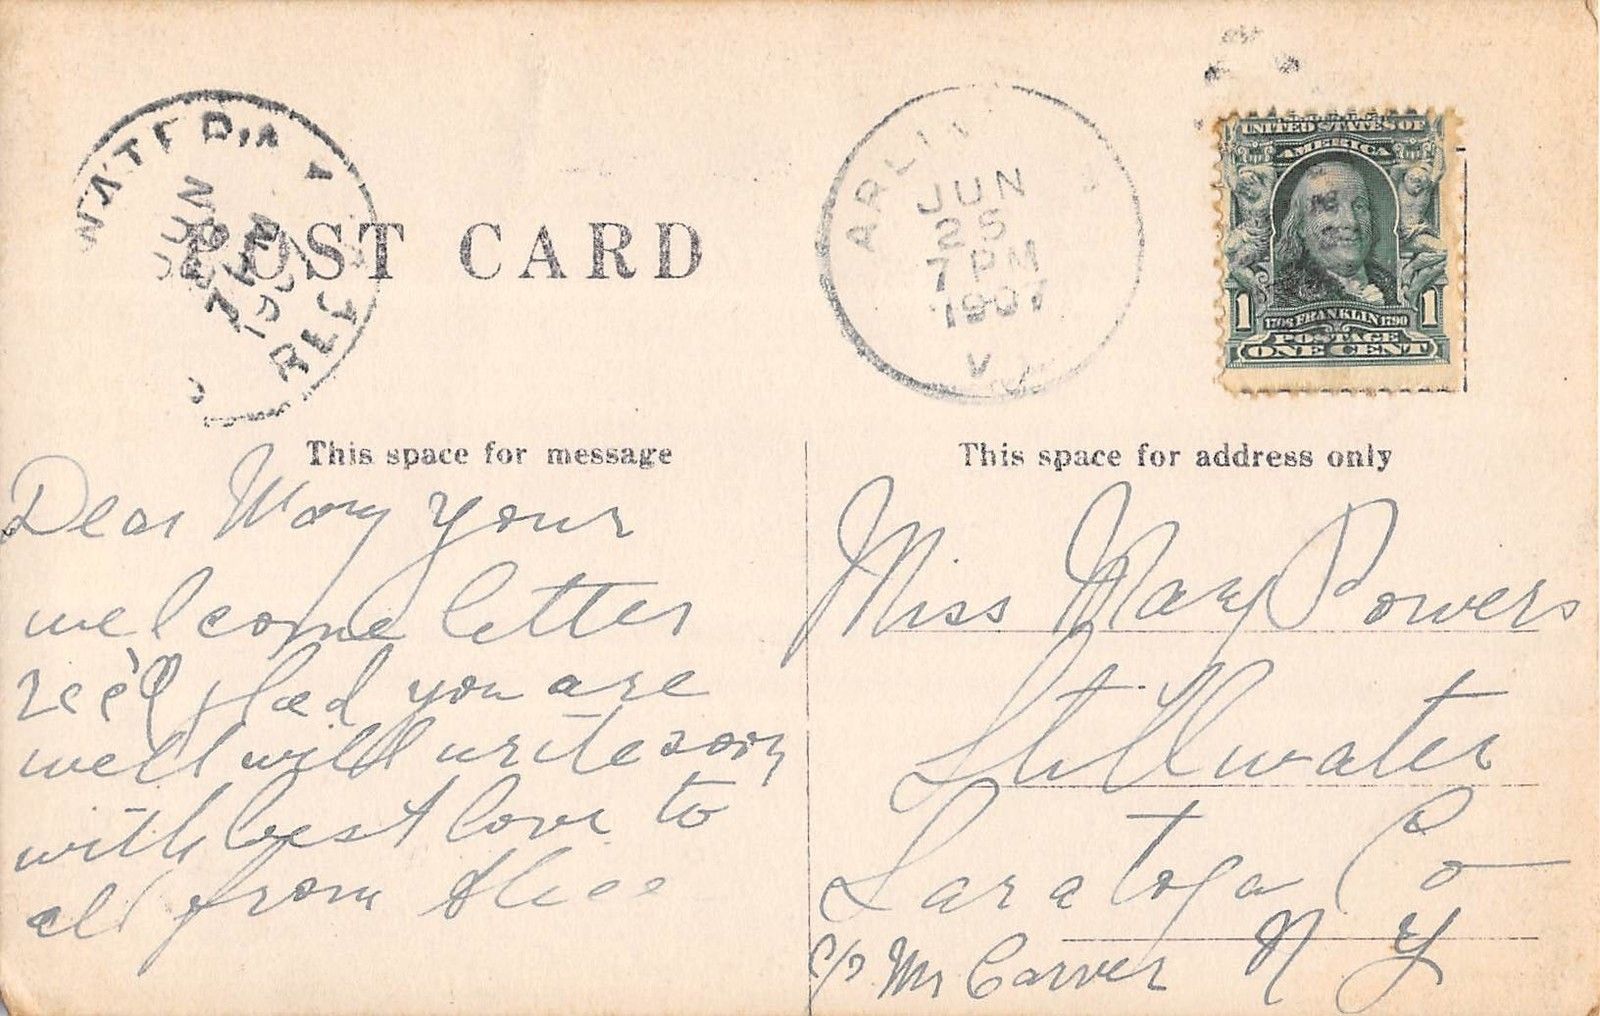 JUN
7 AM
REC
POST CARD
ARLIN
JUN
25
7 PM
1907
V
UNITED STATES OF
AMERICA
1 1
1706 FRANKLIN 1790
POSTAGE
ONE CENT
This space for message
Dear May your
welcome letter
rec'd glad you are
well will write soon
with best love to
all from Alice
This space for address only
Miss May Powers
Stillwater
Saratoga Co
N Y
c/o Mr Carver